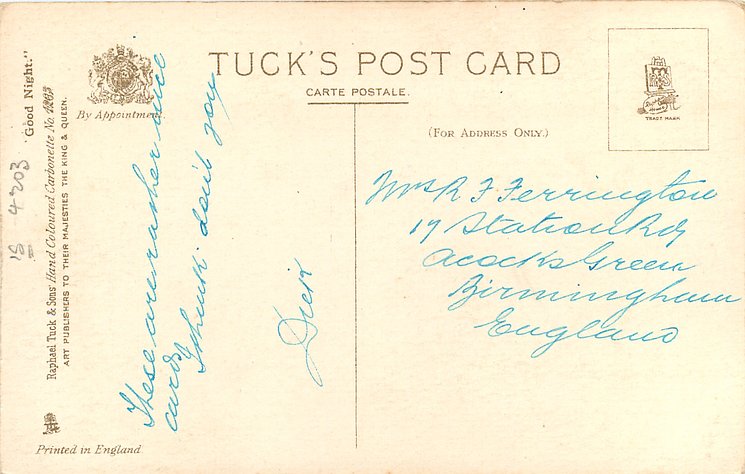 TUCK'S POST CARD
CARTE POSTALE.
(FOR ADDRESS ONLY.)
By Appointment.
TRADE MARK
"Good Night."
Raphael Tuck & Sons' Hand Coloured Carbonette No. 4203
ART PUBLISHERS TO THEIR MAJESTIES THE KING & QUEEN.
Printed in England
4203
These are rather nice
cards I think don't you
Dick
Mrs R F Ferrington
17 Station Rd
Acocks Green
Birmingham
England